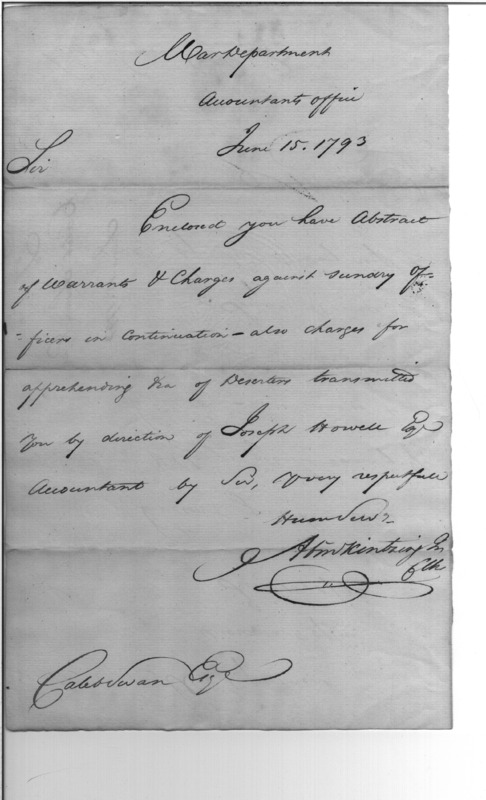 War Department
Accountants office
June 15. 1793
Sir
Enclosed you have Abstract
of Warrants & Charges against sundry Of=
=ficers in Continuation – also charges for
apprehending &ca of Deserters transmitted
you by direction of Joseph Howell Esqr
Accountant by Sir, yr very respectfull
Hum Servt
Jr
Clk
Caleb Swan Esqr